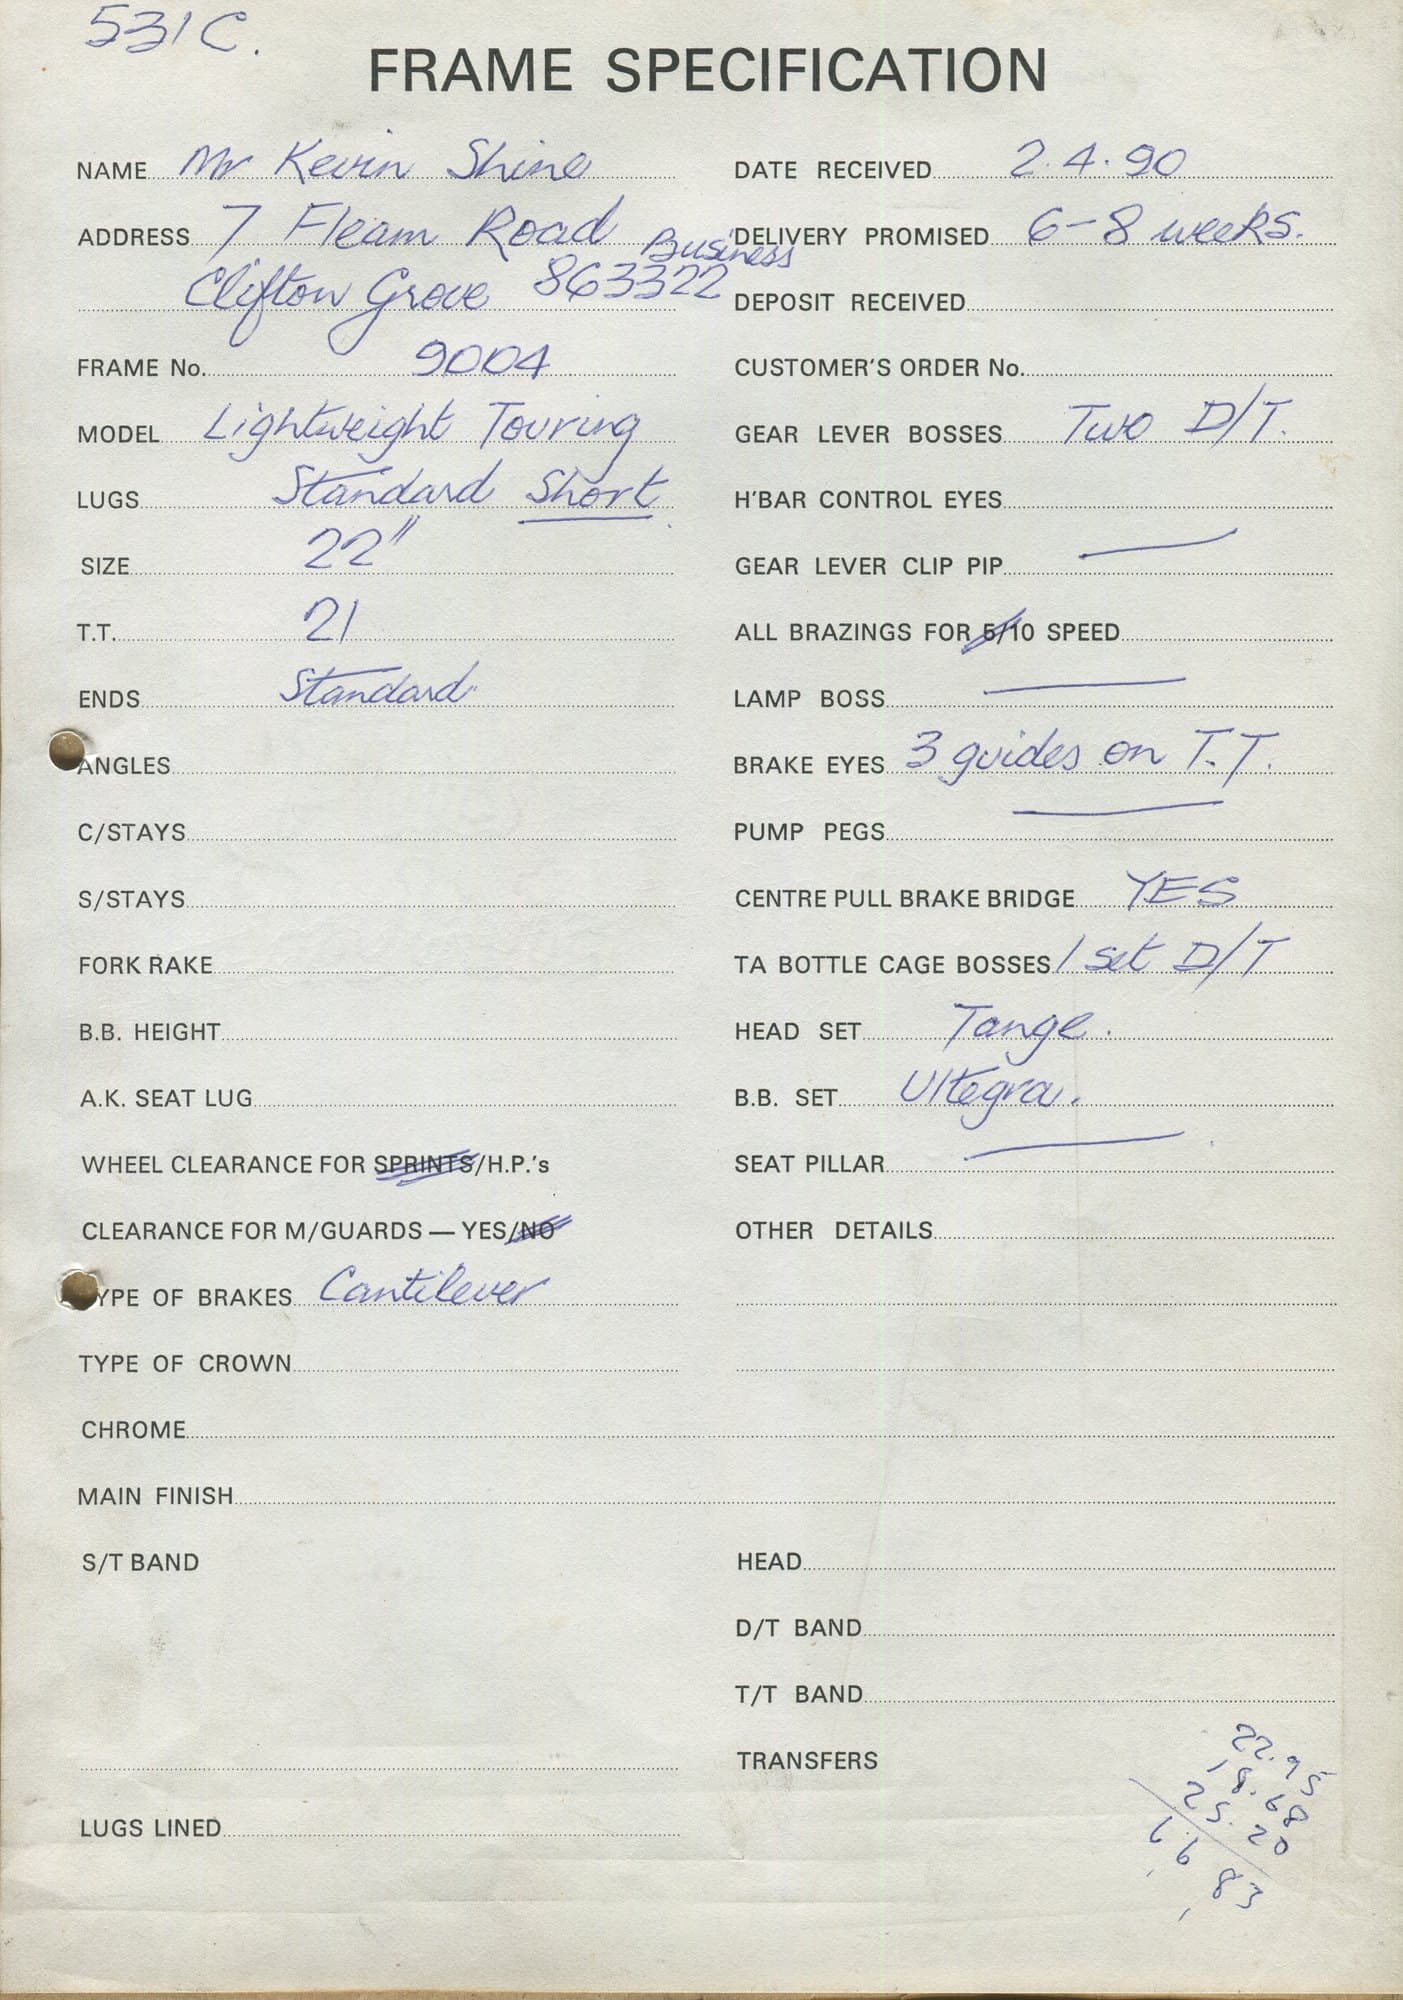 531C.
FRAME SPECIFICATION
NAME Mr Kevin Shine
ADDRESS 7 Fleam Road
Business
Clifton Grove 863322
FRAME No. 9004
MODEL Lightweight Touring
LUGS Standard Short
SIZE 22"
T.T. 21
ENDS Standard
ANGLES
C/STAYS
S/STAYS
FORK RAKE
B.B. HEIGHT
A.K. SEAT LUG
WHEEL CLEARANCE FOR SPRINTS/H.P.'s
CLEARANCE FOR M/GUARDS — YES/NO
TYPE OF BRAKES Cantilever
TYPE OF CROWN
CHROME
MAIN FINISH
S/T BAND
LUGS LINED
DATE RECEIVED 2.4.90
DELIVERY PROMISED 6-8 weeks.
DEPOSIT RECEIVED
CUSTOMER'S ORDER No.
GEAR LEVER BOSSES Two D/T.
H'BAR CONTROL EYES
GEAR LEVER CLIP PIP
ALL BRAZINGS FOR 5/10 SPEED
LAMP BOSS
BRAKE EYES 3 guides on T.T.
PUMP PEGS
CENTRE PULL BRAKE BRIDGE YES
TA BOTTLE CAGE BOSSES 1 set D/T
HEAD SET Tange.
B.B. SET Ultegra.
SEAT PILLAR
OTHER DETAILS
HEAD
D/T BAND
T/T BAND
TRANSFERS
22.95
18.68
25.20
66.83